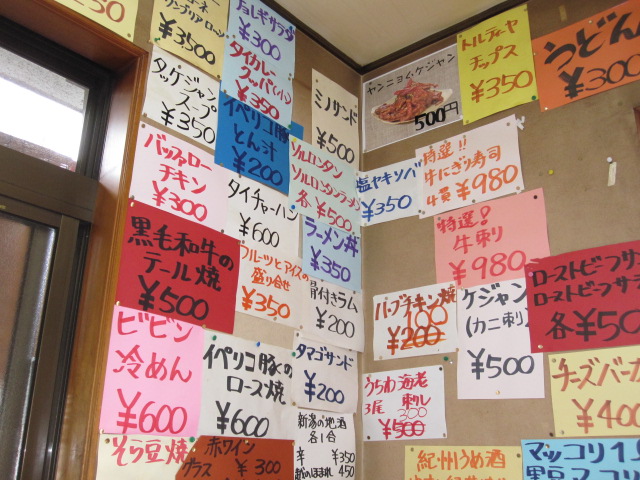 ¥3500
チョレギサラダ
¥300
タイカレー
スッパ(小)
¥350
タッケジャン
スープ
¥350
イベリコ豚
とん汁
¥200
バッファロー
チキン
¥300
タイチャーハン
¥600
黒毛和牛の
テール焼
¥500
フルーツとアイスの
盛り合せ
¥350
ビビン
冷めん
¥600
イベリコ豚の
ロース焼
¥600
そら豆焼
赤ワイン
グラス ¥300
ミノサンド
¥500
ソルロンタン
ソルロンタンラーメン
各¥500
ラーメン丼
¥350
骨付きラム
¥200
タマゴサンド
¥200
新潟の地酒
各1合
¥350
450
ヤンニョムケジャン
500円
トルティーヤ
チップス
¥350
うどん
¥300
塩ヤキソバ
¥350
特選!!
牛にぎり寿司
4貫 ¥980
特選!
牛刺り
¥980
ハーブチキン焼
100
¥200
ケジャン
(カニ刺)
¥500
うちわ海老
3尾 刺し
300
¥500
ローストビーフサ
ローストビーフサ
各¥50
チーズバーガ
¥400
紀州うめ酒
マッコリ